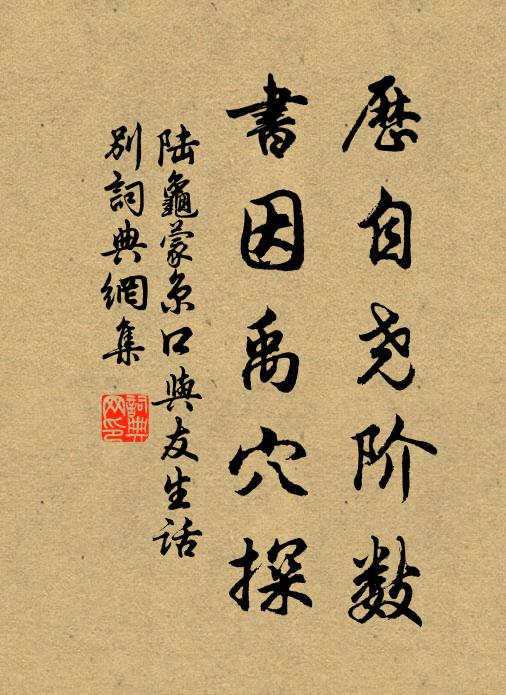 歷自尧阶数
書因禹穴探
陆龜蒙京口與友生話
别詞典網集
詞典
网印